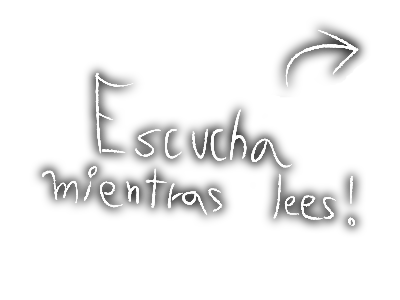 Escucha
mientras lees!